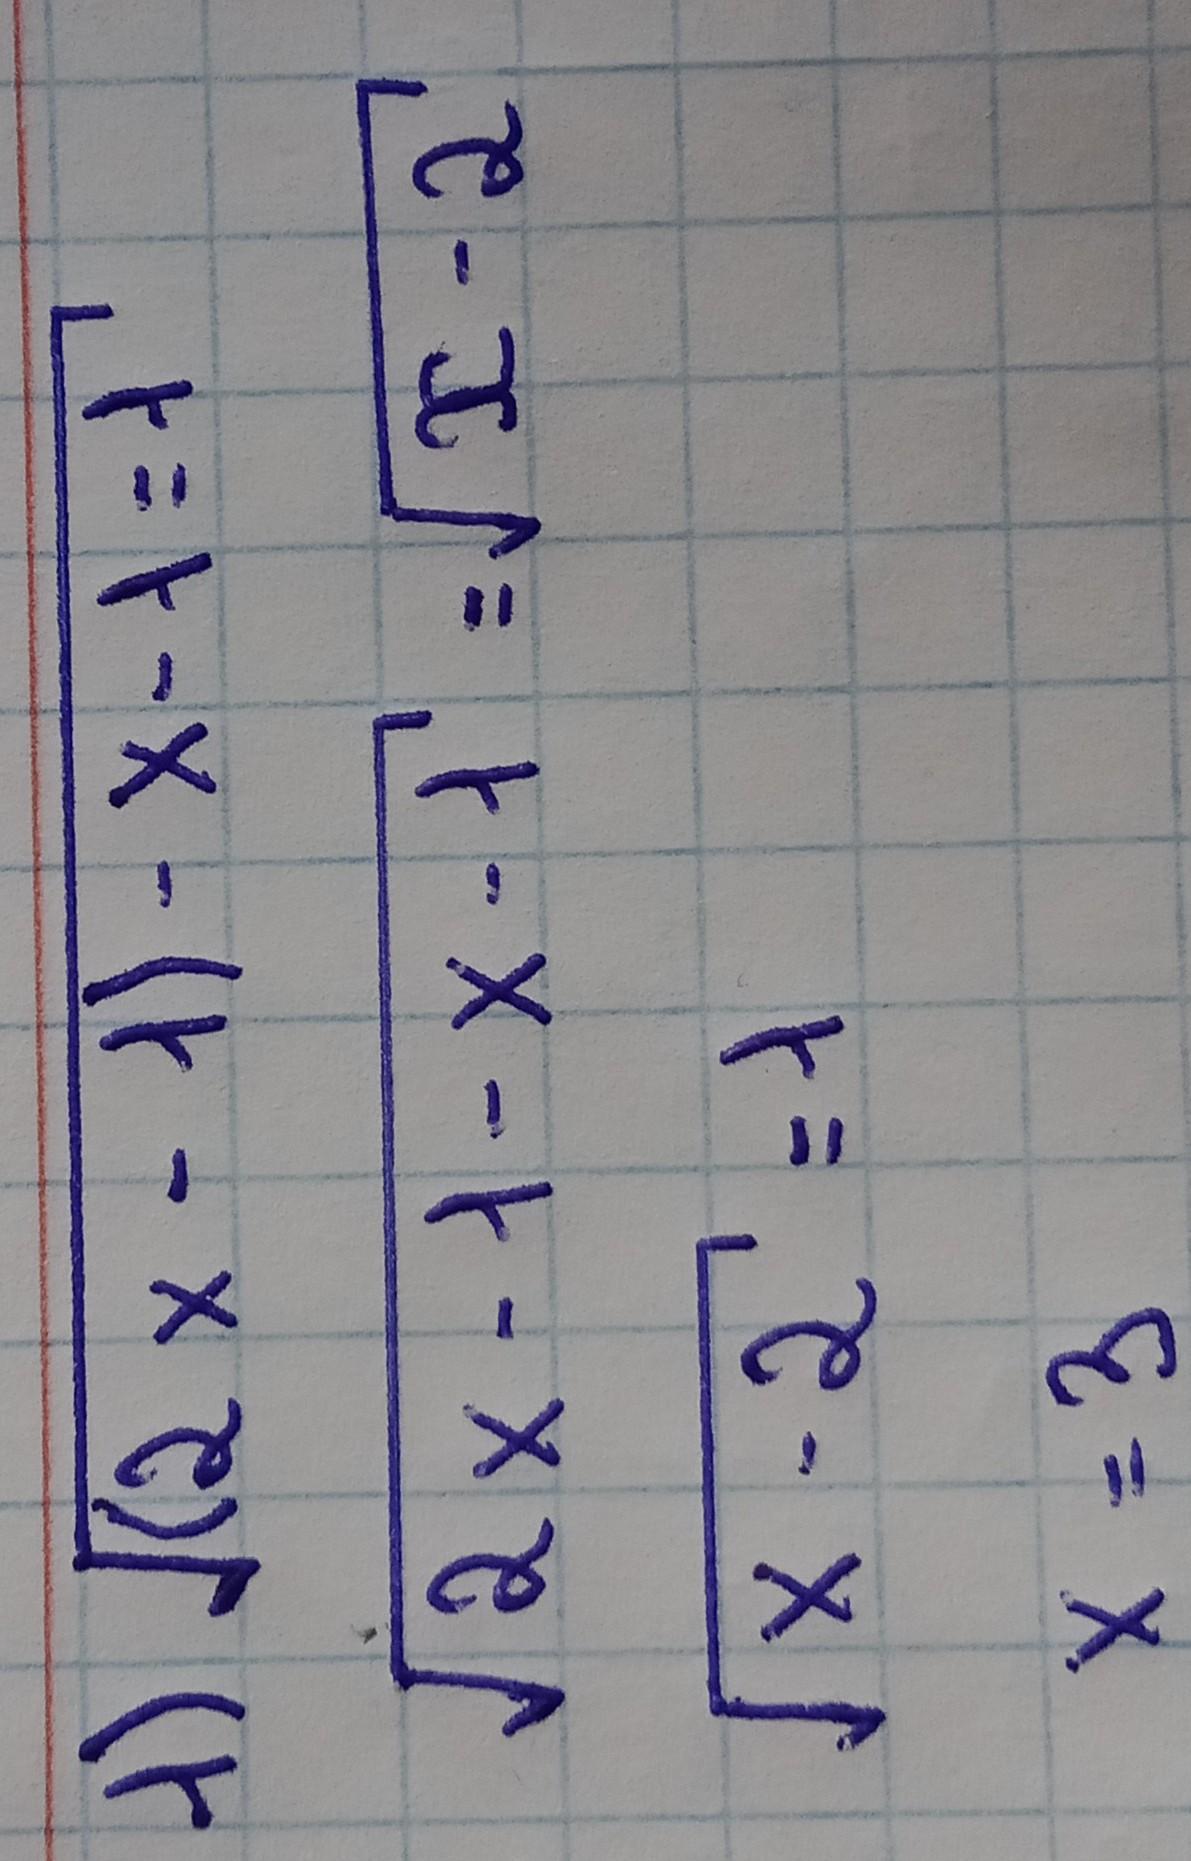 1) √(2x - 1) - x - 1 = 1
√2x - 1 - x - 1 = √x - 2
√x - 2 = 1
x = 3